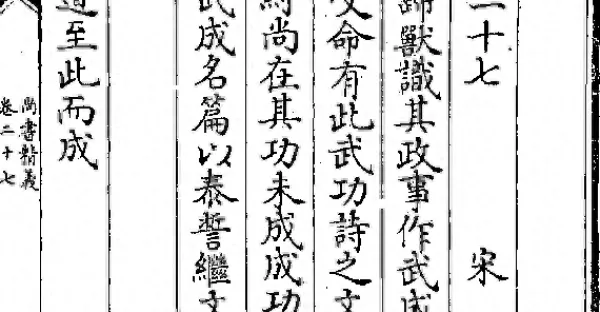 二十七 宋
歸獸識其政事作武成
受命有此武功詩之文
尚在其功未成成功
武成名篇以泰誓繼文
道至此而成
尚書精義
卷二十七